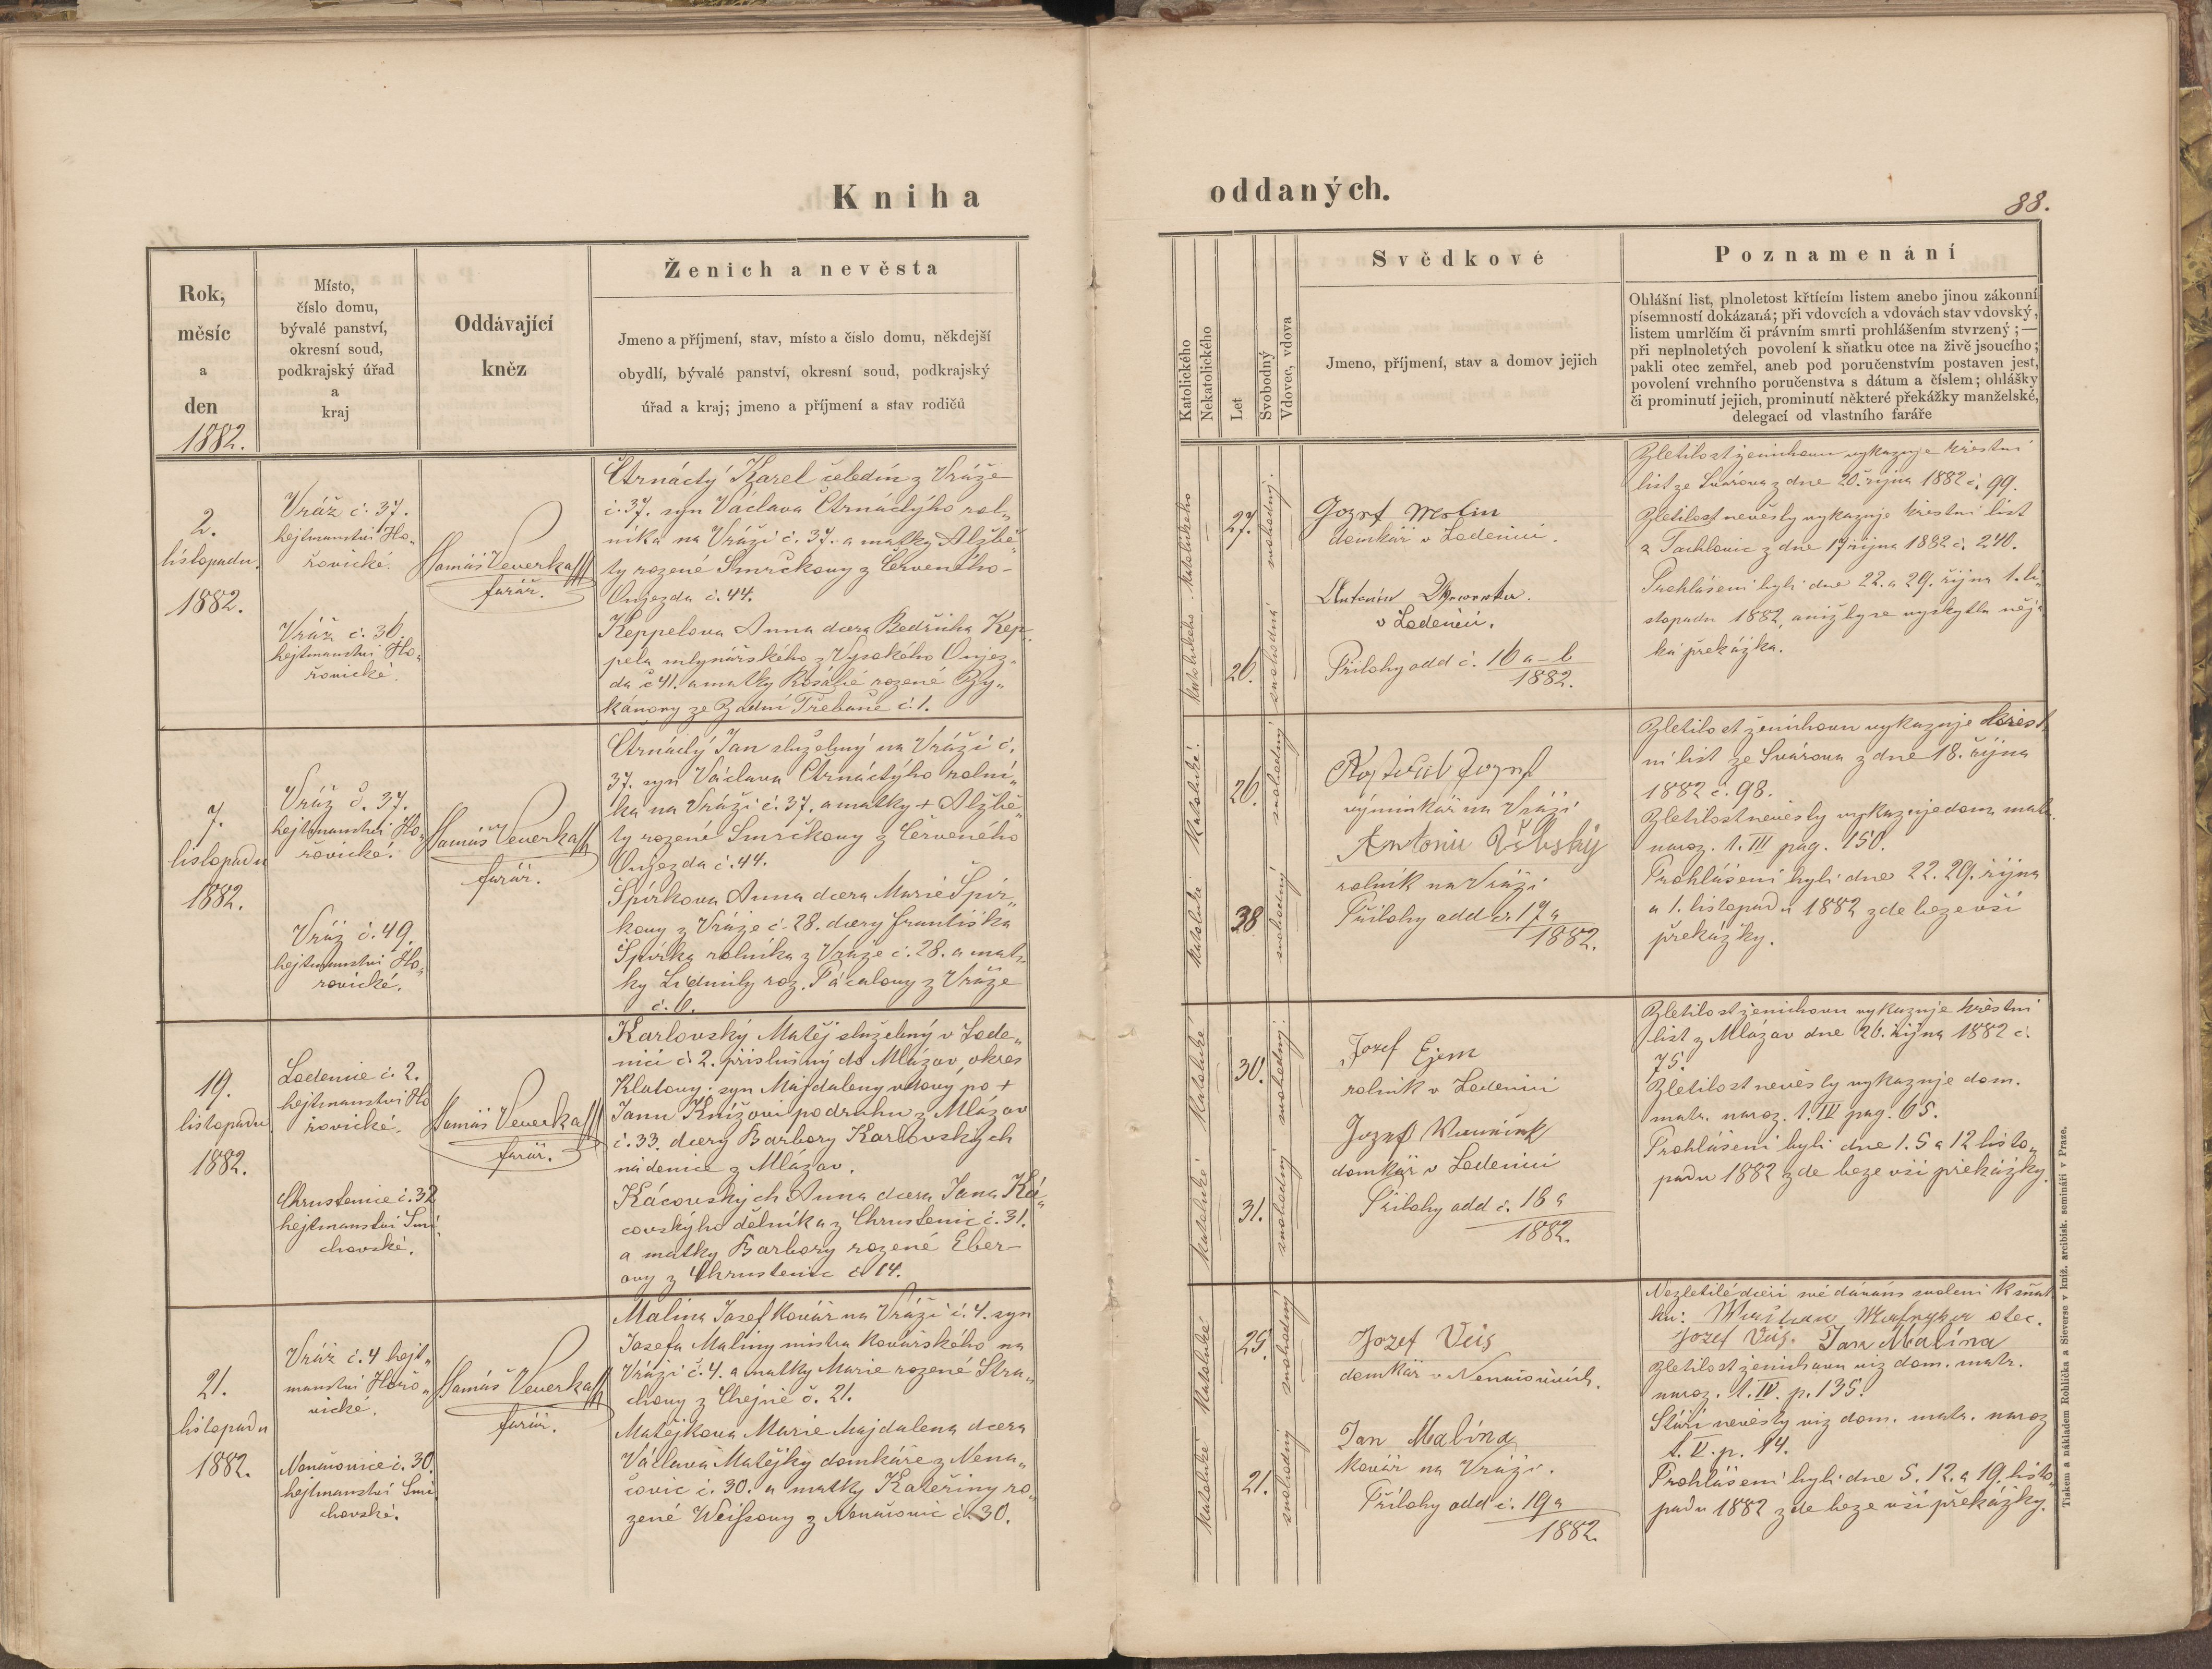 Kniha
oddaných.
88.
Rok,
měsíc
a
den
1882.
Místo,
číslo domu,
bývalé panství,
okresní soud,
podkrajský úřad
a
kraj
Oddávající
kněz
Ženich a nevěsta
Jmeno a příjmení, stav, místo a číslo domu, někdejší
obydlí, bývalé panství, okresní soud, podkrajský
úřad a kraj; jmeno a příjmení a stav rodičů
Katolického
Nekatolického
Let
Svobodný
Vdovec, vdova
Svědkové
Jmeno, příjmení, stav a domov jejich
Poznamenání
Ohlášní list, plnoletost křtícím listem anebo jinou zákonní
písemností dokázaná; při vdovcích a vdovách stav vdovský,
listem umrlčím či právním smrti prohlášením stvrzený; —
při neplnoletých povolení k sňatku otce na živě jsoucího;
pakli otec zemřel, aneb pod poručenstvím postaven jest,
povolení vrchního poručenstva s dátum a číslem; ohlášky
či prominutí jejich, prominutí některé překážky manželské,
delegací od vlastního faráře
2.
listopadu
1882.
Vráž č. 37.
hejtmanství Ho-
řovické.
Vráž č. 36.
hejtmanství Ho-
řovické.
Tomáš Veverka
farář.
Čtrnáctý Karel čeledín z Vráže
č. 37. syn Václava Čtrnáctýho rol„
níka na Vráži č. 37. a matky Alžbě„
ty rozené Smrčkovy z Červeného-
Oujezda č. 44.
Keppelova Anna dcera Bedřicha Kep„
pela mlynářského z Vysokého Oujez„
da č 41. a matky Rosálie rozené Ry„
kánovy ze Zadní Třebaně č. 1.
katolického
katolického
27.
20.
svobodný.
svobodná
Jozef
domkář v Loděnici.
Antonín
v Loděnici.
Přílohy odd č. 16 a – b
1882.
Zletilost ženichovu vykazuje křestní
list ze Svárova z dne 20. října 1882 č. 99.
Zletilost nevěsty vykazuje křestní list
z Tachlovic z dne 17 října 1882 č. 240.
Prohlášeni byli dne 22. a 29. října 1. li„
stopadu 1882, aniž by se vyskytla něja
ká překážka.
7.
listopadu
1882.
Vráž č. 37.
hejtmanství Ho„
řovické.
Vráž č. 49.
hejtmanství Ho„
řovické.
Tomáš Veverka
farář.
Čtrnáctý Jan služebný na Vráži č.
37. syn Václava Čtrnáctýho rolní„
ka na Vráži č. 37. a matky + Alžbě„
ty rozené Smrčkovy z Červeného
Oujezda č. 44.
Špírkova Anna dcera Marie Špír„
kovy z Vráže č. 28. dcery Františka
Špírka rolníka z Vráže č. 28. a mat„
ky Lidmily roz. Pácalovy z Vráže
č. 6.
katolické.
katolické
26.
38
svobodný
svobodný
Jozef
výminkář na Vráži
Antonín
rolník na Vráži
Přílohy odd č. 17 a
1882.
Zletilost ženichovu vykazuje křest„
ní list ze Svárova z dne 18. října
1882 č. 98.
Zletilost nevěsty vykazuje dom. matr.
naroz. t. III pag. 150.
Prohlášeni byli dne 22. 29. října
a 1. listopadu 1882 zde beze vší
překážky.
19.
listopadu
1882.
Loděnice č. 2.
hejtmanství Ho
řovické.
Chrustenice č. 32
hejtmanství Smí„
chovské.
Tomáš Veverka
farář.
Karlovský Matěj služebný v Lodě„
nici č 2. příslušný do Mlázov, okres
Klatovy: syn Majdaleny vdovy po +
Janu Knížovi podruhu z Mlázov
č. 33. dcery Barbory Karlovských
nádenice z Mlázov.
Kácovských Anna dcera Jana Ká„
covskýho dělníka z Chrustenic č. 31.
a matky Barbory rozené Eber
ovy z Chrustenic č. 14.
katolické
katolické
30.
31.
svobodný.
svobodný
Jozef Ejem
rolník v Loděnici
Jozef
domkář v Loděnici
Přílohy odd č. 18 a
1882.
Zletilost ženichovu vykazuje křestní
list z Mlázov dne 26. října 1882 č.
75.
Zletilost nevěsty vykazuje dom.
matr. naroz. t. IV pag. 65.
Prohlášeni byli dne 1. 5 a 12 listo„
padu 1882 zde beze vší překážky.
21.
listopadu
1882.
Vráž č. 4 hejt„
manství Hořo„
vické.
Nenačovice č. 30.
hejtmanství Smí
chovské.
Tomáš Veverka
farář.
Malina Josef kovář na Vráži č. 4. syn
Josefa Maliny mistra kovářského na
Vráži č. 4. a matky Marie rozené Stra„
chovy z Chejně č. 21.
Matějkova Marie Majdalena dcera
Václava Matějky domkáře z Nena„
čovic č. 30. a matky Kateřiny ro„
zené Weissovy z Nenačovic č. 30.
katolické
katolické
25.
21.
svobodný
svobodný
Jozef Veis
domkář v Nenačovicích.
Jan Malína
kovář na Vráži.
Přílohy odd č. 19 a
1882.
Nezletilé dceři své dávám svolení k sňat
ku: otec.
Jozef Veis. Jan Malína
Zletilost ženichovu viz dom. matr.
naroz. t. IV. p. 135.
Stáří nevěsty viz dom. matr. naroz
t. V. p. 14.
Prohlášeni byli dne 5. 12. a 19. listo„
padu 1882 zde beze vší překážky.
Tiskem a nákladem Rohlíčka a Sieverse v kníž. arcibisk. semináři v Praze.